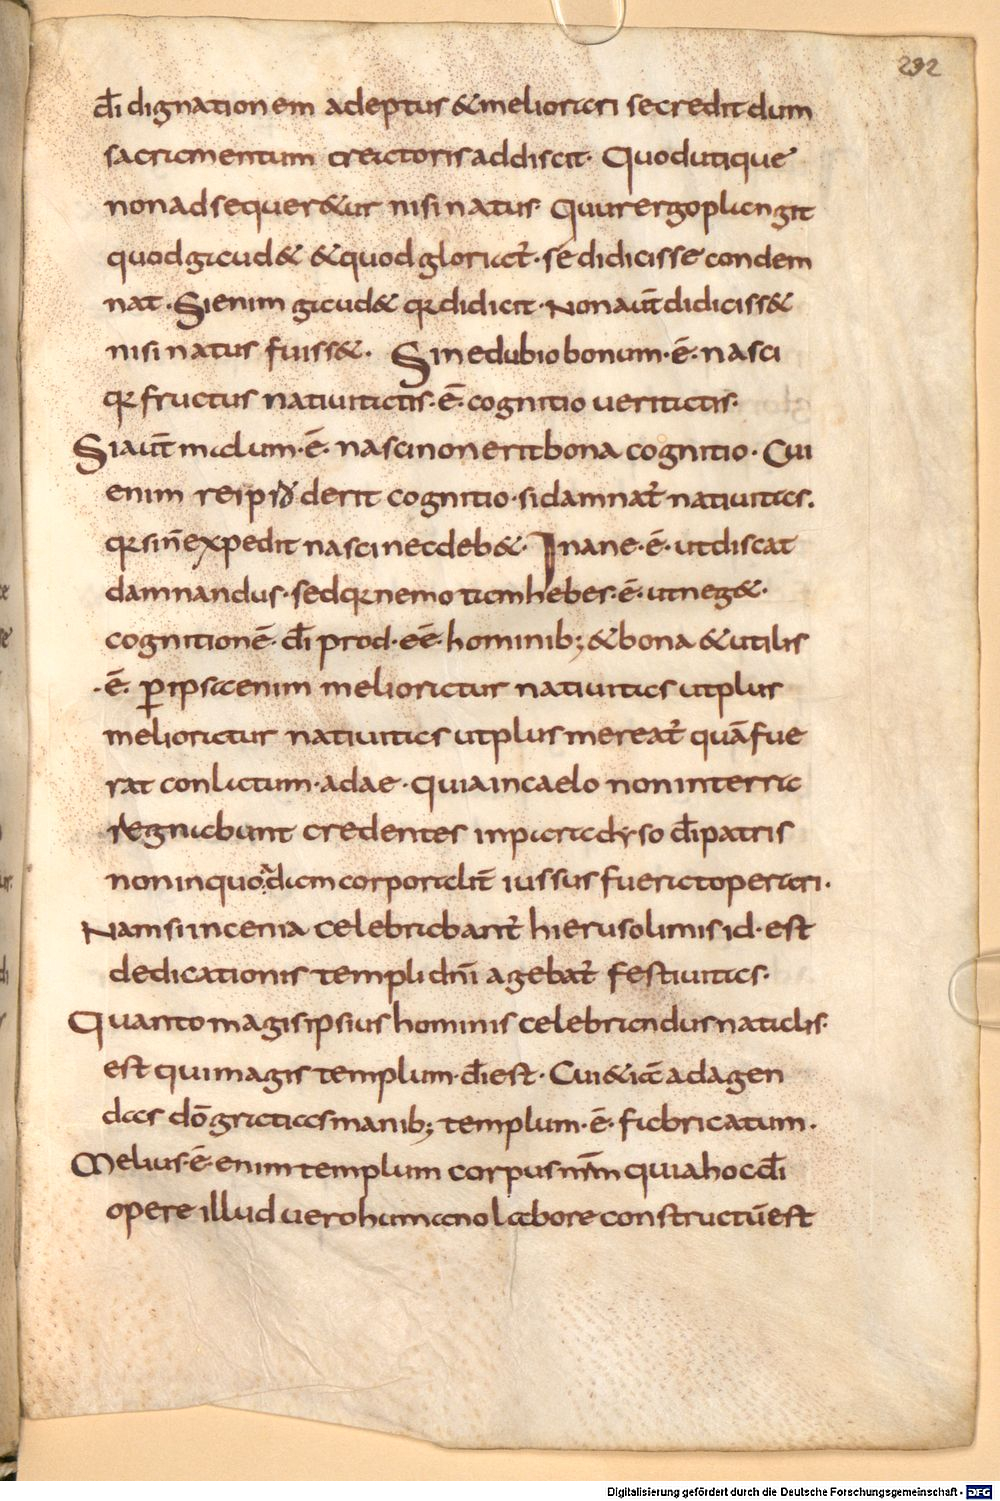 232
dī dignationem adeptus & meliorari se credit dum
sacramentum creatoris addiscit· Quod utique
non adsequer&ur nisi natus· Quur ergo plangit
quod gaud& & quod gloriat̄· se didicisse condem
nat· Si enim gaud& qr didicit· Non aut̄ didiciss&
nisi natus fuiss&· Sine dubio bonum·ē·nasci
qr fructus natiuitatis·ē·cognitio ueritatis·
Si aut̄ malum·ē·nasci non erit bona cognitio· Cui
enim rei pderit cognitio·si damnat̄ natiuitas·
qr si n̄ expedit nasci nec deb&· Inane·ē·ut discat
damnandus·sed qr nemo tam hebes·ē·ut neg&·
cognitionē·dī prod·eē·hominib; & bona & utilis
·ē· p ipsa enim melioratur natiuitas ut plus
melioratur natiuitas ut plus mereat̄ quā fue
rat conlatum·adae· quia in caelo non in terra
regnabunt credentes in paradyso dī patris
non in quodam corporalit̄ iussus fuerat operari·
Nam si incenia celebrabant̄ hierusolimis id·est
dedicationis templi dn̄i agebat̄ festiuitas·
Quanto magis ipsius hominis celebrandus natalis·
est qui magis templum·dī est· Cui & iā ad agen
das dō gratias manib; templum·ē·fabricatum·
Melius·ē·enim templum corpus nr̄m quia hoc dī
opere illud uero humano labore constructū est
Digitalisierung gefördert durch die Deutsche Forschungsgemeinschaft - DFG